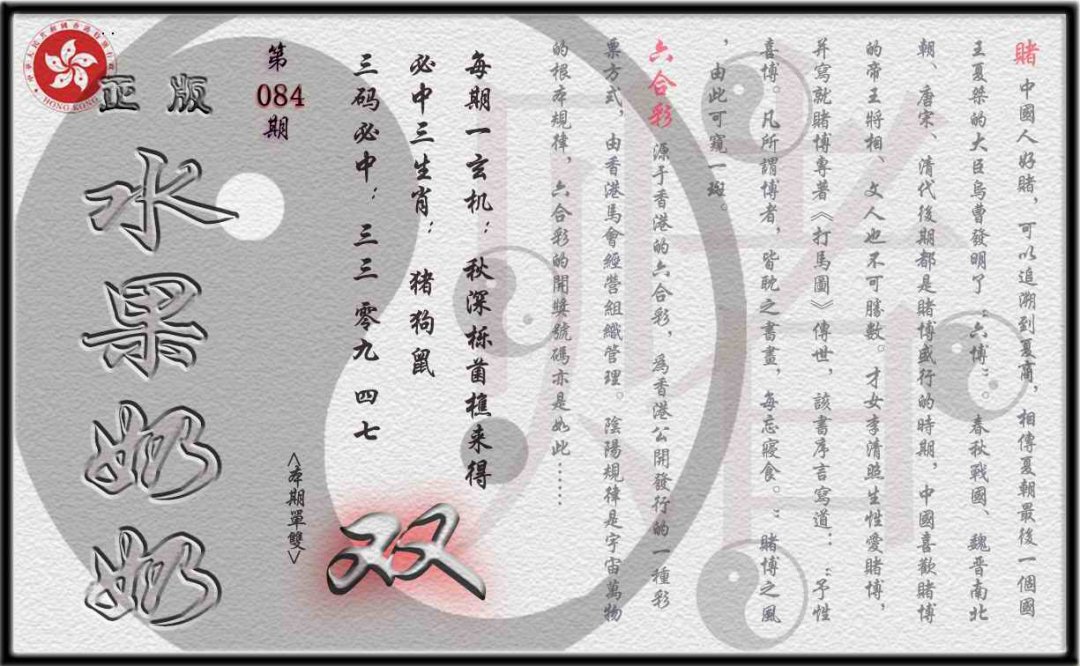 賭 中國人好賭，可以追溯到夏商，相傳夏朝最後一個國
王夏桀的大臣烏曹發明了“六博”。春秋戰國、魏晉南北
朝、唐宋、清代後期都是賭博盛行的時期，中國喜歡賭博
的帝王將相、文人也不可勝數。才女李清照生性愛賭博，
并寫就賭博專著《打馬圖》傳世，該書序言寫道：“予性
喜博。凡所謂博者，皆耽之書畫，每忘寢食。”賭博之風
，由此可窺一斑。
六合彩 源于香港的六合彩，爲香港公開發行的一種彩
票方式，由香港馬會經營組織管理。陰陽規律是宇宙萬物
的根本規律，六合彩的開獎號碼亦是如此……
每期一玄机：秋深栎菌樵来得
必中三生肖：猪狗鼠
三码必中：三三 零九 四七
双
<本期單雙>
第084期
正版
水果奶奶
HONG KONG